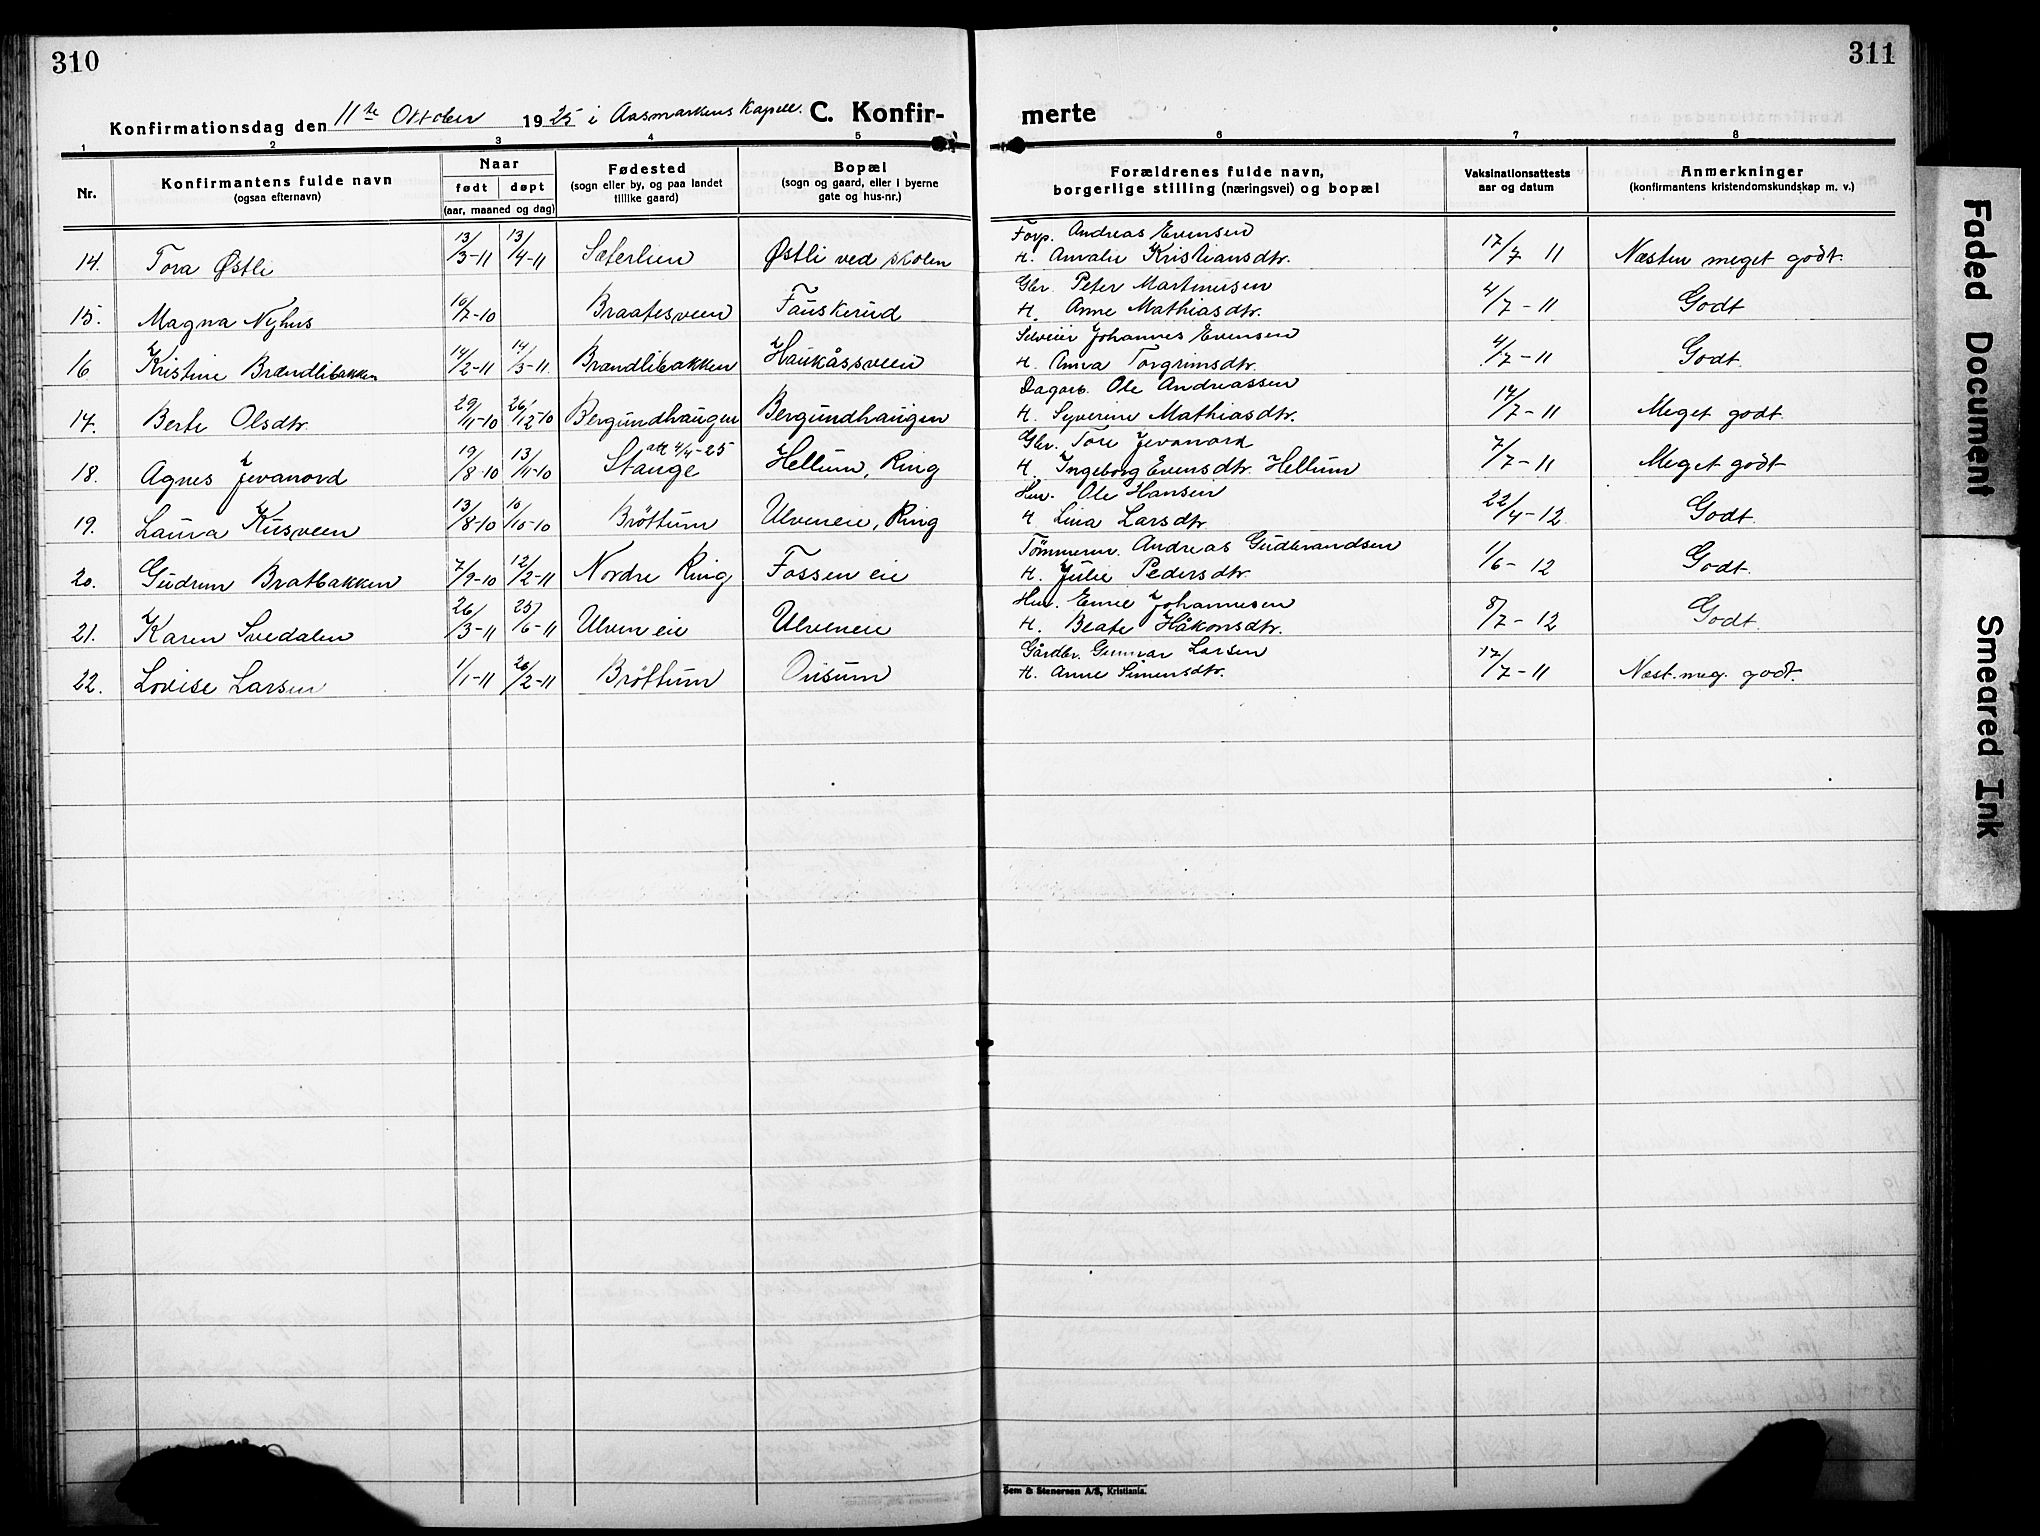 310
311
Konfirmationsdag den 11te Oktober 1925 i Aasmarkens Kapell. C. Konfir-
merte
1 2 3 4 5 6 7 8
Nr. Konfirmantens fulde navn (ogsaa efternavn) Naar født døpt (aar, maaned og dag) Fødested (sogn eller by, og paa landet tillike gaard) Bopæl (sogn og gaard, eller i byerne gate og hus-nr.) Forældrenes fulde navn, borgerlige stilling (næringsvei) og bopæl Vaksinationsattests aar og datum Anmerkninger (konfirmantens kristendomskundskap m. v.)
Forp. Andreas Evensen
14. Tora Østli 13/3-11 13/4-11 Sæterlien Østli ved skolen H. Amalie Kristiansdtr. 17/7 11 Næsten meget godt.
Gbr. Peter Martinusen
15. Magna Nyhus 10/7-10 Braatesveen Fauskerud H. Anne Mathiasdtr. 4/7-11 Godt
Selveier Johannes Evensen
16 Kristine Brændlibakken 14/2-11 14/3-11. Brændlibakken Haukåssveen H. Anna Torgrimsdtr. 4/7-11 Godt.
Dagarb. Ole Andreassen
17. Berte Olsdtr. 29/11-10 26/12-10 Bergundhaugen Bergundhaugen H. Syverine Mathiasdtr. 17/7-11 Meget godt.
Gbr. Tore Jevanord
18. Agnes Jevanord 19/8-10 13/11-10 Stange att 4/4-25 Hellum, Ring H. Ingeborg Evensdtr. Hellum 7/7-11 Meget godt
Hm. Ole Hansen
19. Laura Kusveen 13/8-10 10/10-10 Brøttum Ulveneie, Ring H Lina Larsdtr. 22/4-12. Godt.
Tømmerm. Andreas Gudbrandsen
20. Gudrun Bratbakken 7/9-10 12/2-11 Nordre Ring Fossen eie H. Julie Pedersdtr. 1/6-12 Godt.
Hm. Emil Johannesen
21. Karen Svedalen 26/3-11 25/6-11 Ulven eie Ulveneie H. Beate Håkonsdtr. 8/7-12 Godt.
Gårdbr. Gunnar Larsen
22. Lovise Larsen 1/1-11 26/2-11 Brøttum Ousum H. Anne Simensdtr. 17/7-11 Næst. meg. godt.
Sem & Stenersen A/S, Kristiania.
Faded Document
Smeared Ink